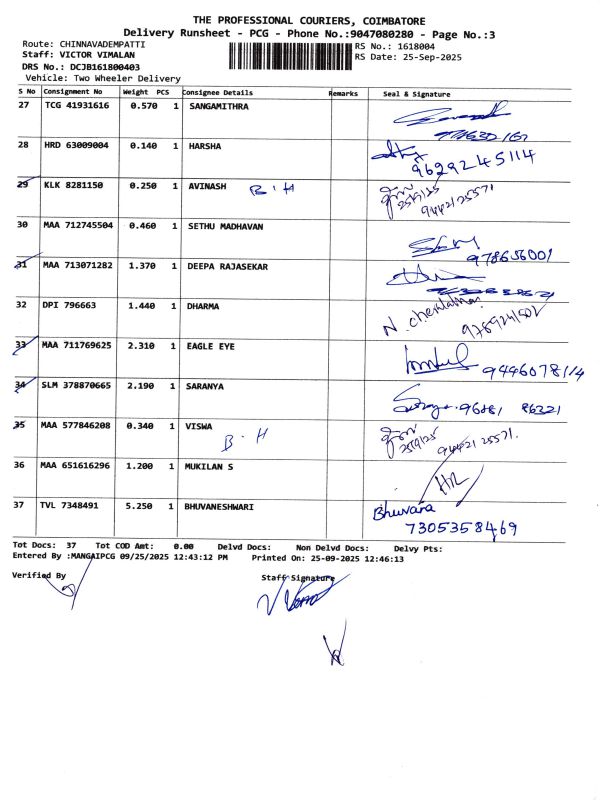 THE PROFESSIONAL COURIERS, COIMBATORE
Delivery Runsheet - PCG - Phone No.:9047080280 - Page No.:3
Route: CHINNAVADEMPATTI RS No.: 1618004
Staff: VICTOR VIMALAN RS Date: 25-Sep-2025
DRS No.: DCJB161800403
Vehicle: Two Wheeler Delivery
S No Consignment No Weight PCS Consignee Details Remarks Seal & Signature
27 TCG 41931616 0.570 1 SANGAMITHRA
28 HRD 63009004 0.140 1 HARSHA
9629245114
29 KLK 8281150 0.250 1 AVINASH B.H
25/9/25
9442125571
30 MAA 712745504 0.460 1 SETHU MADHAVAN
978656001
31 MAA 713071282 1.370 1 DEEPA RAJASEKAR
32 DPI 796663 1.440 1 DHARMA
9789241502
33 MAA 711769625 2.310 1 EAGLE EYE
9446078114
34 SLM 378870665 2.190 1 SARANYA
96881 86321
35 MAA 577846208 0.340 1 VISWA
B.H
25/9/25
9442125571.
36 MAA 651616296 1.200 1 MUKILAN S
37 TVL 7348491 5.250 1 BHUVANESHWARI
Bhuvana
7305358469
Tot Docs: 37 Tot COD Amt: 0.00 Delvd Docs: Non Delvd Docs: Delvy Pts:
Entered By :MANGAIPCG 09/25/2025 12:43:12 PM Printed On: 25-09-2025 12:46:13
Verified By Staff Signature